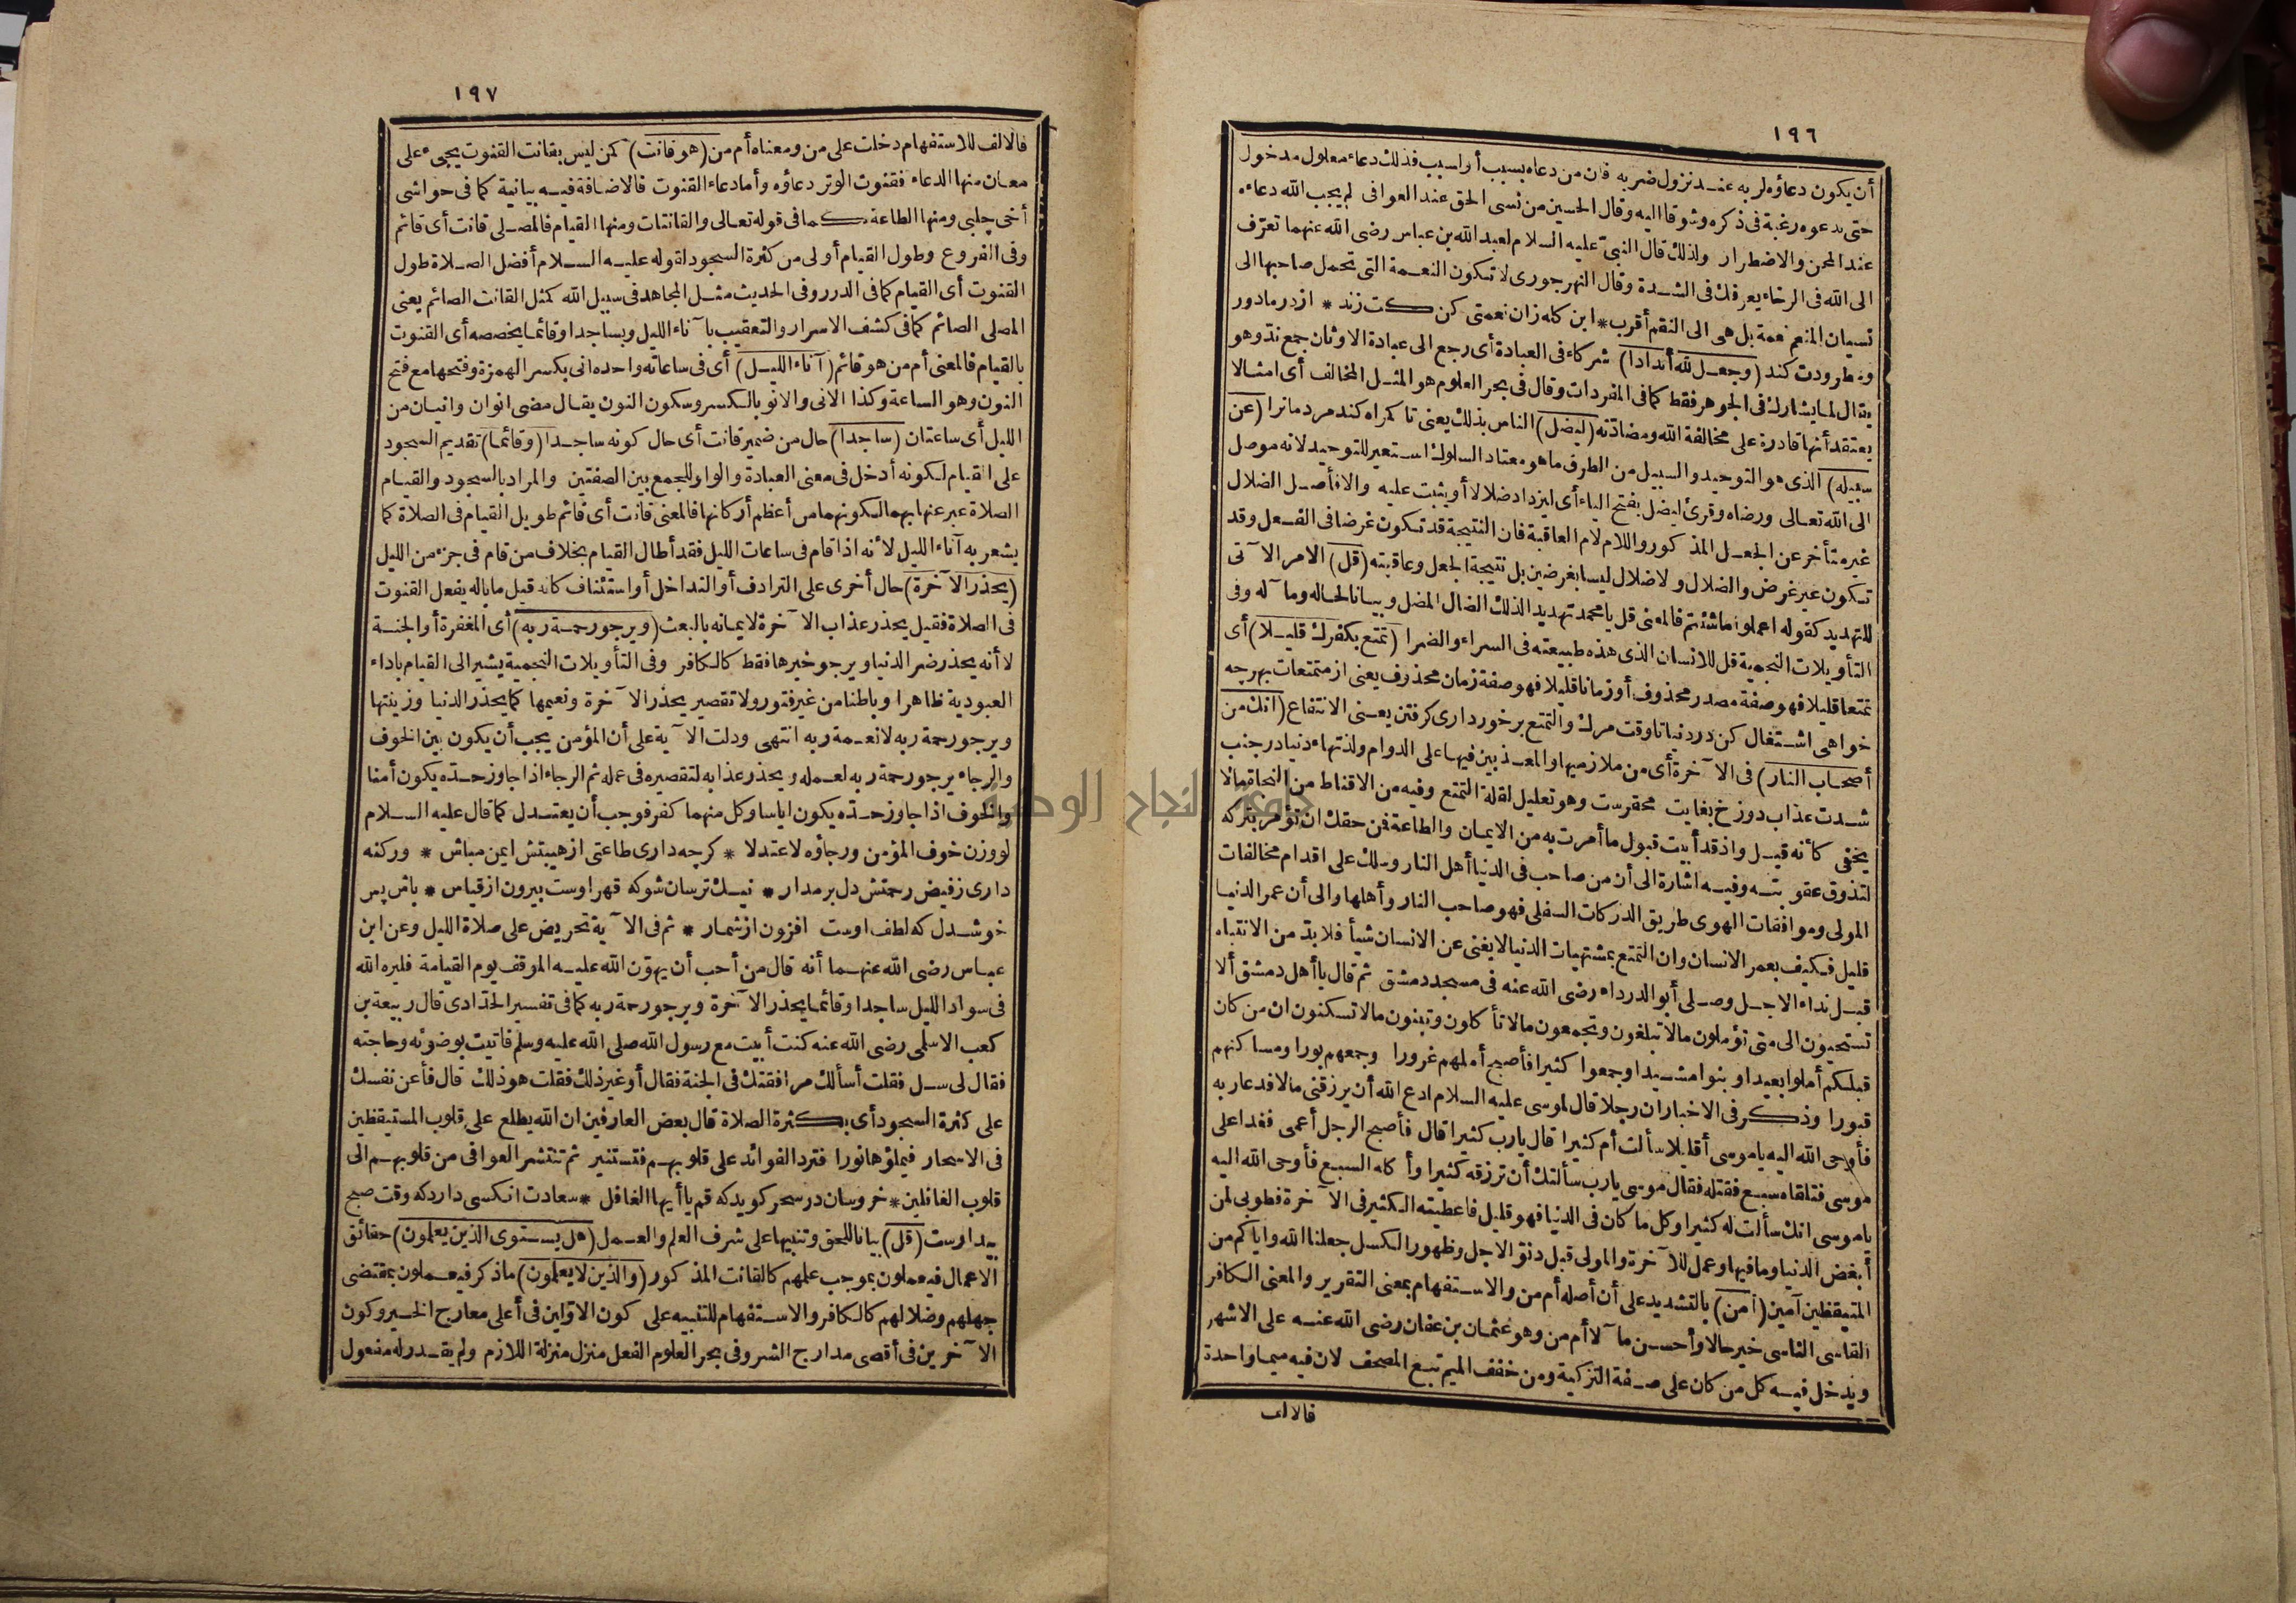 ١٩٦
أن يكون دعاؤه لربه عند نزول ضر به فان من دعاه بسبب أو لسبب فذلك دعاء معلول مدخول
حتى يدعوه رغبة فى ذكره وشوقا اليه وقال الحسين من نسى الحق عند العوافى لم يجب الله دعاءه
عند المحن والاضطرار ولذلك قال النبى عليه السلام لعبد الله بن عباس رضى الله عنهما تعرّف
الى الله فى الرخاء يعرفك فى الشدة وقال النهرجورى لا تكون النعمة التى تحمل صاحبها الى
نسيان المنعم نعمة بل هى الى النقم أقرب * اين كله زان نعمتى كن كت زند * از در ما دور
ومطرودت كند (وجعل لله أندادا) شركاء فى العبادة أى رجع الى عبادة الاوثان جمع ند وهو
يقال لما يشارك فى الجوهر فقط كما فى المفردات وقال فى بحر العلوم هو المثل المخالف أى امثالا
يعتقد أنها قادرة على مخالفة الله ومضادّته (ليضل) الناس بذلك يعنى تا كمراه كند مردمانرا (عن
سبيله) الذى هو التوحيد والسبيل من الطرق ما هو معتاد السلوك استعير للتوحيد لانه موصل
الى الله تعالى ورضاه وقرئ ليضل بفتح الياء أى ليزداد ضلالا أو يثبت عليه والا فأصل الضلال
غير متأخر عن الجعل المذكور واللام لام العاقبة فان النتيجة قد تكون غرضا فى الفعل وقد
تكون غير غرض والضلال والاضلال ليسا بغرضين بل نتيجة الجعل وعاقبته (قل) الامر الآتى
للتهديد كقوله اعملوا ما شئتم فالمعنى قل يا محمد تهديدا لذلك الضال المضل وبيانا لحاله ومآله وفى
التأويلات النجمية قل للانسان الذى هذه طبيعته فى السراء والضرا (تمتع بكفرك قليلا) أى
تمتعا قليلا فهو صفة مصدر محذوف أو زمانا قليلا فهو صفة زمان محذوف يعنى از متمتعات بهرچه
خواهى اشتغال كن در دنيا تا وقت مرك والتمتع برخوردارى كرفتن يعنى الانتفاع (انك من
أصحاب النار) فى الآخرة أى من ملازميها والمعذبين فيها على الدوام ولذتهاء دنيا در جنب
شدت عذاب دوزخ بغايت محقرست وهو تعليل لقلة التمتع وفيه من الاقناط من النجاة ما لا
يخفى كأنه قيل واذ قد أبيت قبول ما أمرت به من الايمان والطاعة فمن حقك ان تؤمر بتركه
لتذوق عقوبته وفيه اشارة الى أن من صاحب فى الدنيا أهل النار وسلك على اقدام مخالفات
المولى وموافقات الهوى طريق الدركات السفلى فهو صاحب النار وأهلها والى أن عمر الدنيا
قليل فكيف بعمر الانسان وان التمتع بمشتهيات الدنيا لا يغنى عن الانسان شيأ فلا بدّ من الانتباه
قبل نداء الاجل وصلى أبو الدرداء رضى الله عنه فى مسجد دمشق ثم قال يا أهل دمشق ألا
تستحيون الى متى تؤملون ما لا تبلغون وتجمعون ما لا تأكلون وتبنون ما لا تسكنون ان من كان
قبلكم أملوا بعيدا وبنوا مشيدا وجمعوا كثيرا فأصبح أملهم غرورا وجمعهم بورا ومساكنهم
قبورا وذكر فى الاخبار ان رجلا قال لموسى عليه السلام ادع الله أن يرزقنى مالا فدعا ربه
فأوحى الله اليه يا موسى أقليلا سألت أم كثيرا قال يارب كثيرا قال فأصبح الرجل أعمى فغدا على
موسى فتلقاه سبع فقتله فقال موسى يارب سألتك أن ترزقه كثيرا وأكله السبع فأوحى الله اليه
يا موسى انك سألت له كثيرا وكل ما كان فى الدنيا فهو قليل فاعطيته الكثير فى الآخرة فطوبى لمن
أبغض الدنيا وما فيها وعمل للآخرة والمولى قبل دنوّ الاجل وظهور الكسل جعلنا الله واياكم من
المتيقظين آمين (أمن) بالتشديد على أن أصله أم من والاستفهام بمعنى التقرير والمعنى الكافر
القاسى الناسى خير حالا وأحسن مآلا أم من وهو عثمان بن عفان رضى الله عنه على الاشهر
ويدخل فيه كل من كان على صفة التزكية ومن خفف الميم تبع المصحف لان فيه ميما واحدة
فالالف
١٩٧
فالالف للاستفهام دخلت على من ومعناه أم من (هو قانت) كمن ليس بقانت القنوت يجىء على
معان منها الدعاء فقنوت الوتر دعاؤه وأما دعاء القنوت فالاضافة فيه بيانية كما فى حواشى
أخى چلبى ومنها الطاعة كما فى قوله تعالى والقانتات ومنها القيام فالمصلى قانت أى قائم
وفى الفروع وطول القيام أولى من كثرة السجود لقوله عليه السلام أفضل الصلاة طول
القنوت أى القيام كما فى الدرر وفى الحديث مثل المجاهد فى سبيل الله كمثل القانت الصائم يعنى
المصلى الصائم كما فى كشف الاسرار والتعقيب بآناء الليل وبساجدا وقائما يخصصه أى القنوت
بالقيام فالمعنى أم من هو قائم (آناء الليل) أى فى ساعاته واحده انى بكسر الهمزة وفتحها مع فتح
النون وهو الساعة وكذا الانى والانو بالكسر وسكون النون يقال مضى انوان وانيان من
الليل أى ساعتان (ساجدا) حال من ضمير قانت أى حال كونه ساجدا (وقائما) تقديم السجود
على القيام لكونه أدخل فى معنى العبادة والواو للجمع بين الصفتين والمراد بالسجود والقيام
الصلاة عبر عنها بهما لكونهما من أعظم أركانها فالمعنى قانت أى قائم طويل القيام فى الصلاة كما
يشعر به آناء الليل لأنه اذا قام فى ساعات الليل فقد أطال القيام بخلاف من قام فى جزء من الليل
(يحذر الآخرة) حال أخرى على الترادف أو التداخل أو استئناف كانه قيل ما باله يفعل القنوت
فى الصلاة فقيل يحذر عذاب الآخرة لايمانه بالبعث (ويرجو رحمة ربه) أى المغفرة أو الجنة
لا أنه يحذر ضر الدنيا ويرجو خيرها فقط كالكافر وفى التأويلات النجمية يشير الى القيام باداء
العبودية ظاهرا وباطنا من غير فتور ولا تقصير يحذر الآخرة ونعيمها كما يحذر الدنيا وزينتها
ويرجو رحمة ربه لا نعمة ربه انتهى ودلت الآية على أن المؤمن يجب أن يكون بين الخوف
والرجاء يرجو رحمة ربه لعمله ويحذر عذابه لتقصيره فى عمله ثم الرجاء اذا جاوز حدّه يكون أمنا
والخوف اذا جاوز حدّه يكون اياسا وكل منهما كفر فوجب أن يعتدل كما قال عليه السلام
لو وزن خوف المؤمن ورجاؤه لاعتدلا * كرچه دارى طاعتى از هيبتش ايمن مباش * وركنه
دارى زفيض رحمتش دل بر مدار * نيك ترسان شو كه قهر اوست بيرون از قياس * باش پس
خوشدل كه لطف اوست افزون از شمار * ثم فى الآية تحريض على صلاة الليل وعن ابن
عباس رضى الله عنهما أنه قال من أحب أن يهوّن الله عليه الموقف يوم القيامة فليره الله
فى سواد الليل ساجدا وقائما يحذر الآخرة ويرجو رحمة ربه كما فى تفسير الحدّادى قال ربيعة بن
كعب الاسلمى رضى الله عنه كنت أبيت مع رسول الله صلى الله عليه وسلم فاتيت بوضوئه وحاجته
فقال لى سل فقلت أسألك مرافقتك فى الجنة فقال أو غير ذلك فقلت هو ذلك قال فأعن نفسك
على كثرة السجود أى بكثرة الصلاة قال بعض العارفين ان الله يطلع على قلوب المستيقظين
فى الاسحار فيملؤها نورا فترد الفوائد على قلوبهم فتستنير ثم تنتشر العوافى من قلوبهم الى
قلوب الغافلين * خروسان در سحر كويد كه قم يا أيها الغافل * سعادت انكسى دارد كه وقت صبح
بيدارست (قل) بيانا للحق وتنبيها على شرف العلم والعمل (هل يستوى الذين يعلمون) حقائق
الاعمال فيعملون بموجب علمهم كالقانت المذكور (والذين لا يعلمون) ما ذكر فيعملون بمقتضى
جهلهم وضلالهم كالكافر والاستفهام للتنبيه على كون الاوّلين فى أعلى معارج الخير وكون
الآخرين فى أقصى مدارج الشر وفى بحر العلوم الفعل منزل منزلة اللازم ولم يقدر له مفعول
النجاح